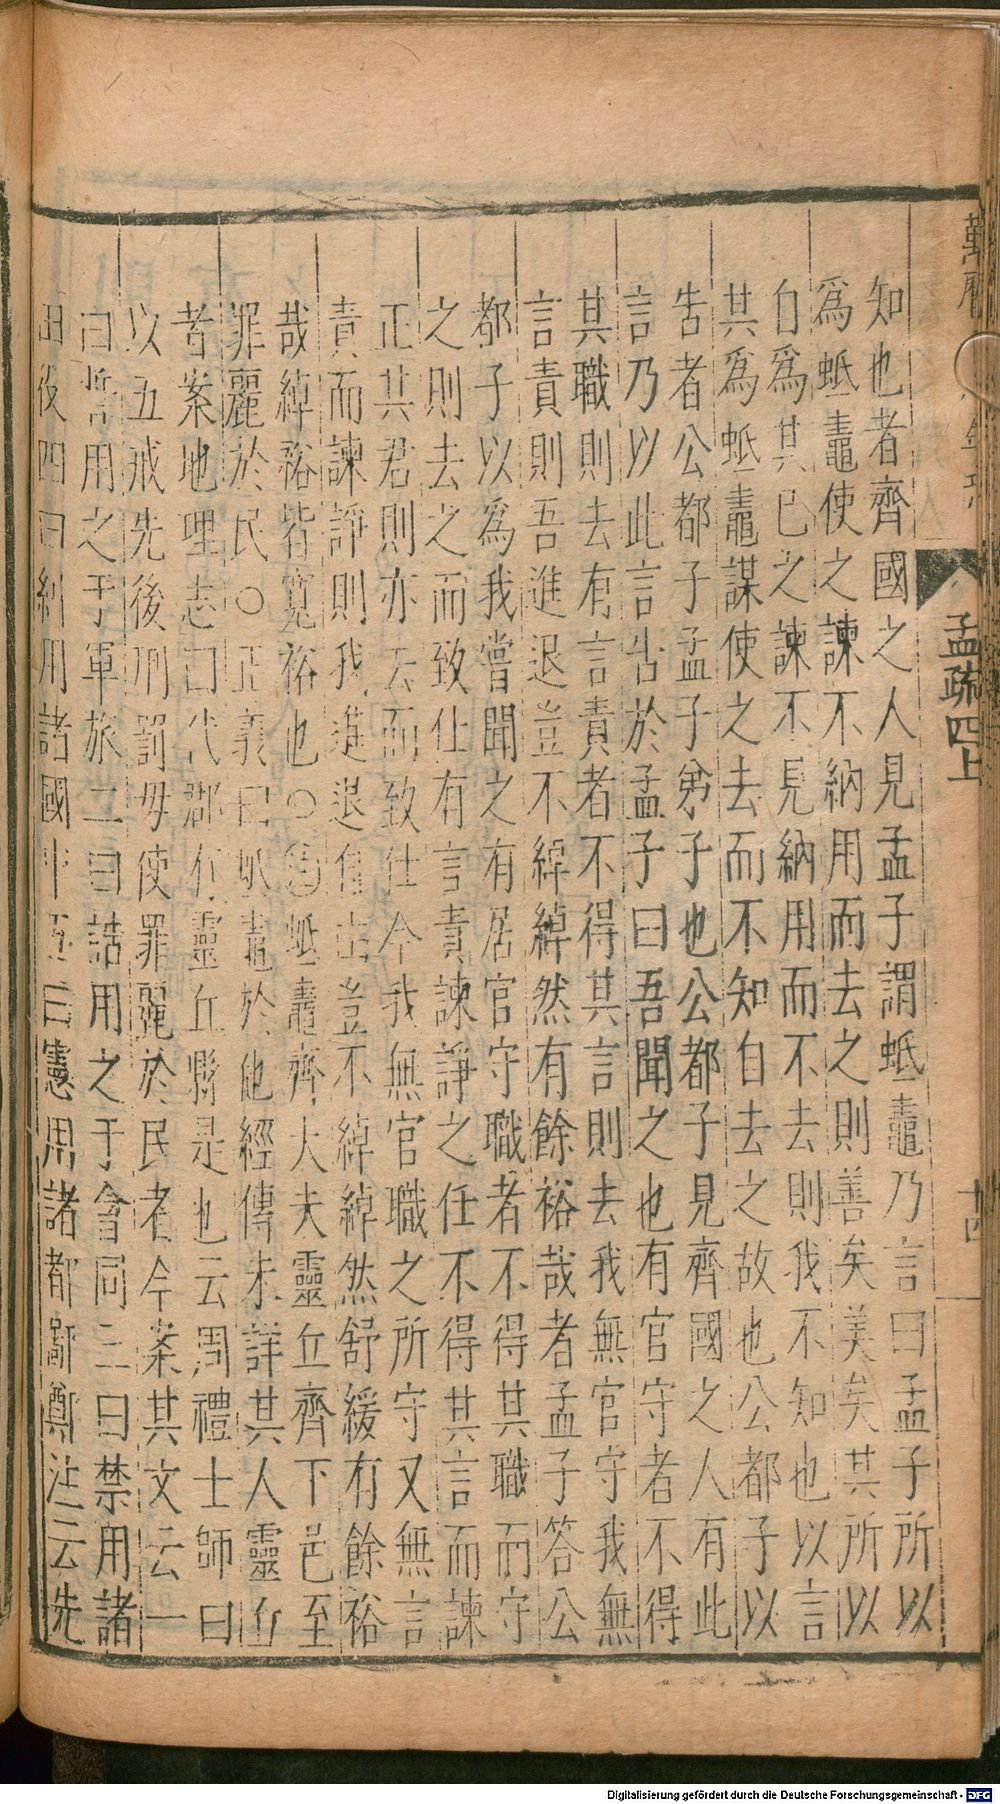 萬曆
孟疏四上
十四
知也者齊國之人見孟子謂蚳鼃乃言曰孟子所以
爲蚳鼃使之諫不納用而去之則善矣美矣其所以
自爲其已之諫不見納用而不去則我不知也以言
其爲蚳鼃謀使之去而不知自去之故也公都子以
告者公都子孟子弟子也公都子見齊國之人有此
言乃以此言告於孟子曰吾聞之也有官守者不得
其職則去有言責者不得其言則去我無官守我無
言責則吾進退豈不綽綽然有餘裕哉者孟子答公
都子以爲我嘗聞之有居官守職者不得其職而守
之則去之而致仕有言責諫諍之任不得其言而諫
正其君則亦去而致仕今我無官職之所守又無言
責而諫諍則我進退自由豈不綽綽然舒緩有餘裕
哉綽裕皆寬裕也○注蚳鼃齊大夫靈丘齊下邑至
罪麗於民○正義曰蚳鼃於他經傳未詳其人靈丘
者案地理志曰代郡有靈丘縣是也云周禮士師曰
以五戒先後刑罰毋使罪麗於民者今案其文云一
曰誓用之于軍旅二曰誥用之于會同三曰禁用諸
田役四曰糾用諸國中五曰憲用諸都鄙鄭注云先
Digitalisierung gefördert durch die Deutsche Forschungsgemeinschaft - DFG